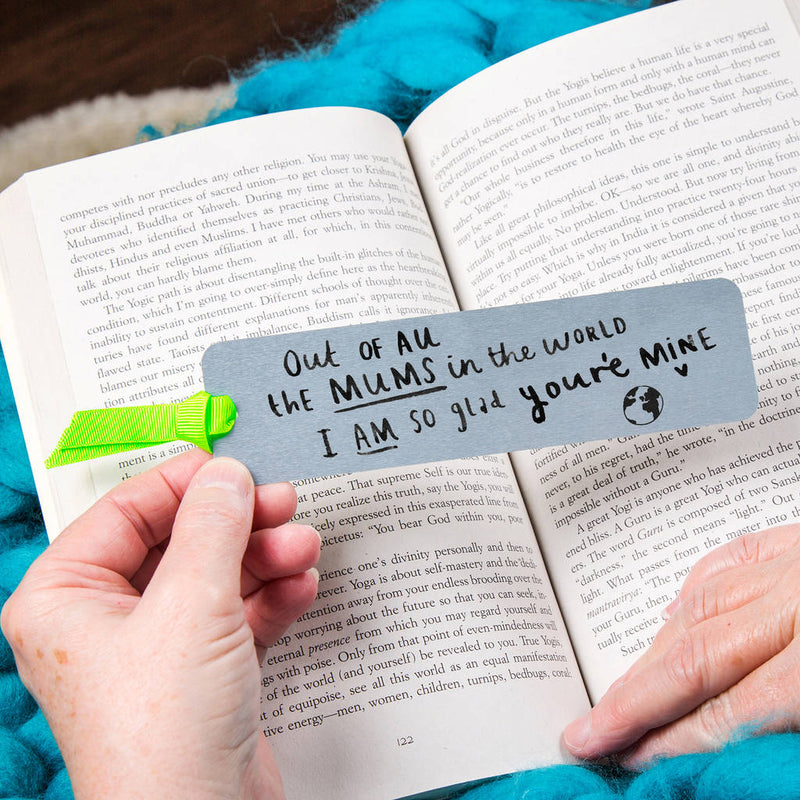 competes with nor precludes any other religion. You may use your Yogic
your disciplined practices of sacred union—to get closer to Krishna, Jesus,
Muhammad, Buddha or Yahweh. During my time at the Ashram, I met
devotees who identified themselves as practicing Christians, Jews, Bud-
dhists, Hindus and even Muslims. I have met others who would rather not
talk about their religious affiliation at all, for which, in this contentious
world, you can hardly blame them.
The Yogic path is about disentangling the built-in glitches of the human
condition, which I'm going to over-simply define here as the heartbreaking
inability to sustain contentment. Different schools of thought over the
turies have found different explanations for man's apparently inherent
flawed state. Taoists call it imbalance, Buddhism calls it ignorance
blames our misery
tion attributes all
Out OF ALL
the MUMS in the WORLD
I AM so glad you're MINE
ment is
at peace. That supreme Self is our true
before you realize this truth, say the Yogis, you will
nicely expressed in this exasperated line from
Epictetus: "You bear God within you, poor
experience one's divinity personally and then to
forever. Yoga is about self-mastery and the dedi-
attention away from your endless brooding over the
worrying about the future so that you can seek, in-
eternal presence from which you may regard yourself and
with poise. Only from that point of even-mindedness will
of the world (and yourself) be revealed to you. True Yogis,
of equipoise, see all this world as an equal manifestation
creative energy—men, women, children, turnips, bedbugs, coral:
122
it's all God in disguise. But the Yogis believe a human life is a very special
opportunity, because only in a human form and only with a human mind can
God realization ever occur. The turnips, the bedbugs, the coral—they never
get a chance to find out who they really are. But we do have that chance.
"Our whole business therefore in this life," wrote Saint Augustine,
rather Yogically, "is to restore to health the eye of the heart whereby God
may be seen."
Like all great philosophical ideas, this one is simple to understand but
virtually impossible to imbibe. OK—so we are all one, and divinity abides
within us all equally. No problem. Understood. But now try living from
place. Try putting that understanding into practice twenty-four hours
It's not so easy. Which is why in India it is considered a given that you
for your Yoga. Unless you were born one of those rare shining
into life already fully actualized, you're going to need
toward enlightenment. If you're lucky
pilgrims have been coming
ambassador to
fortified with
ness of all men," Gandhi
never, to his regret, find
is a great deal of truth," he wrote, "in the doctrine
impossible without a Guru."
A great Yogi is anyone who has achieved the
ened bliss. A Guru is a great Yogi who can actually
ers. The word Guru is composed of two Sanskrit
"darkness," the second means "light." Out
light. What passes from the master into
mantravirya: "The potency
your Guru, then,
tually receive
Such